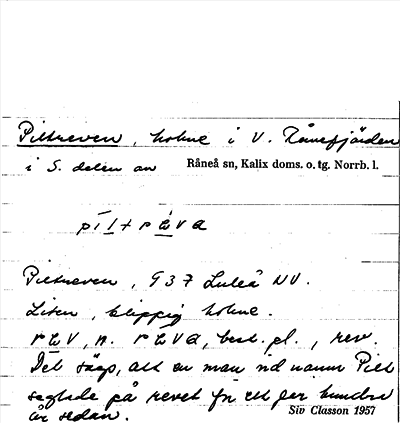 Piltreven, holme i V. Rånefjärden
i S. delen av Råneå sn, Kalix doms. o. tg. Norrb. l.
Piltreven, 937 Luleå NV.
Liten, klippig holme.
n. best. pl., rev.
Det säges, att en man vid namn Pilt
seglade på revet för ett par hundra
år sedan. Siv Classon 1957